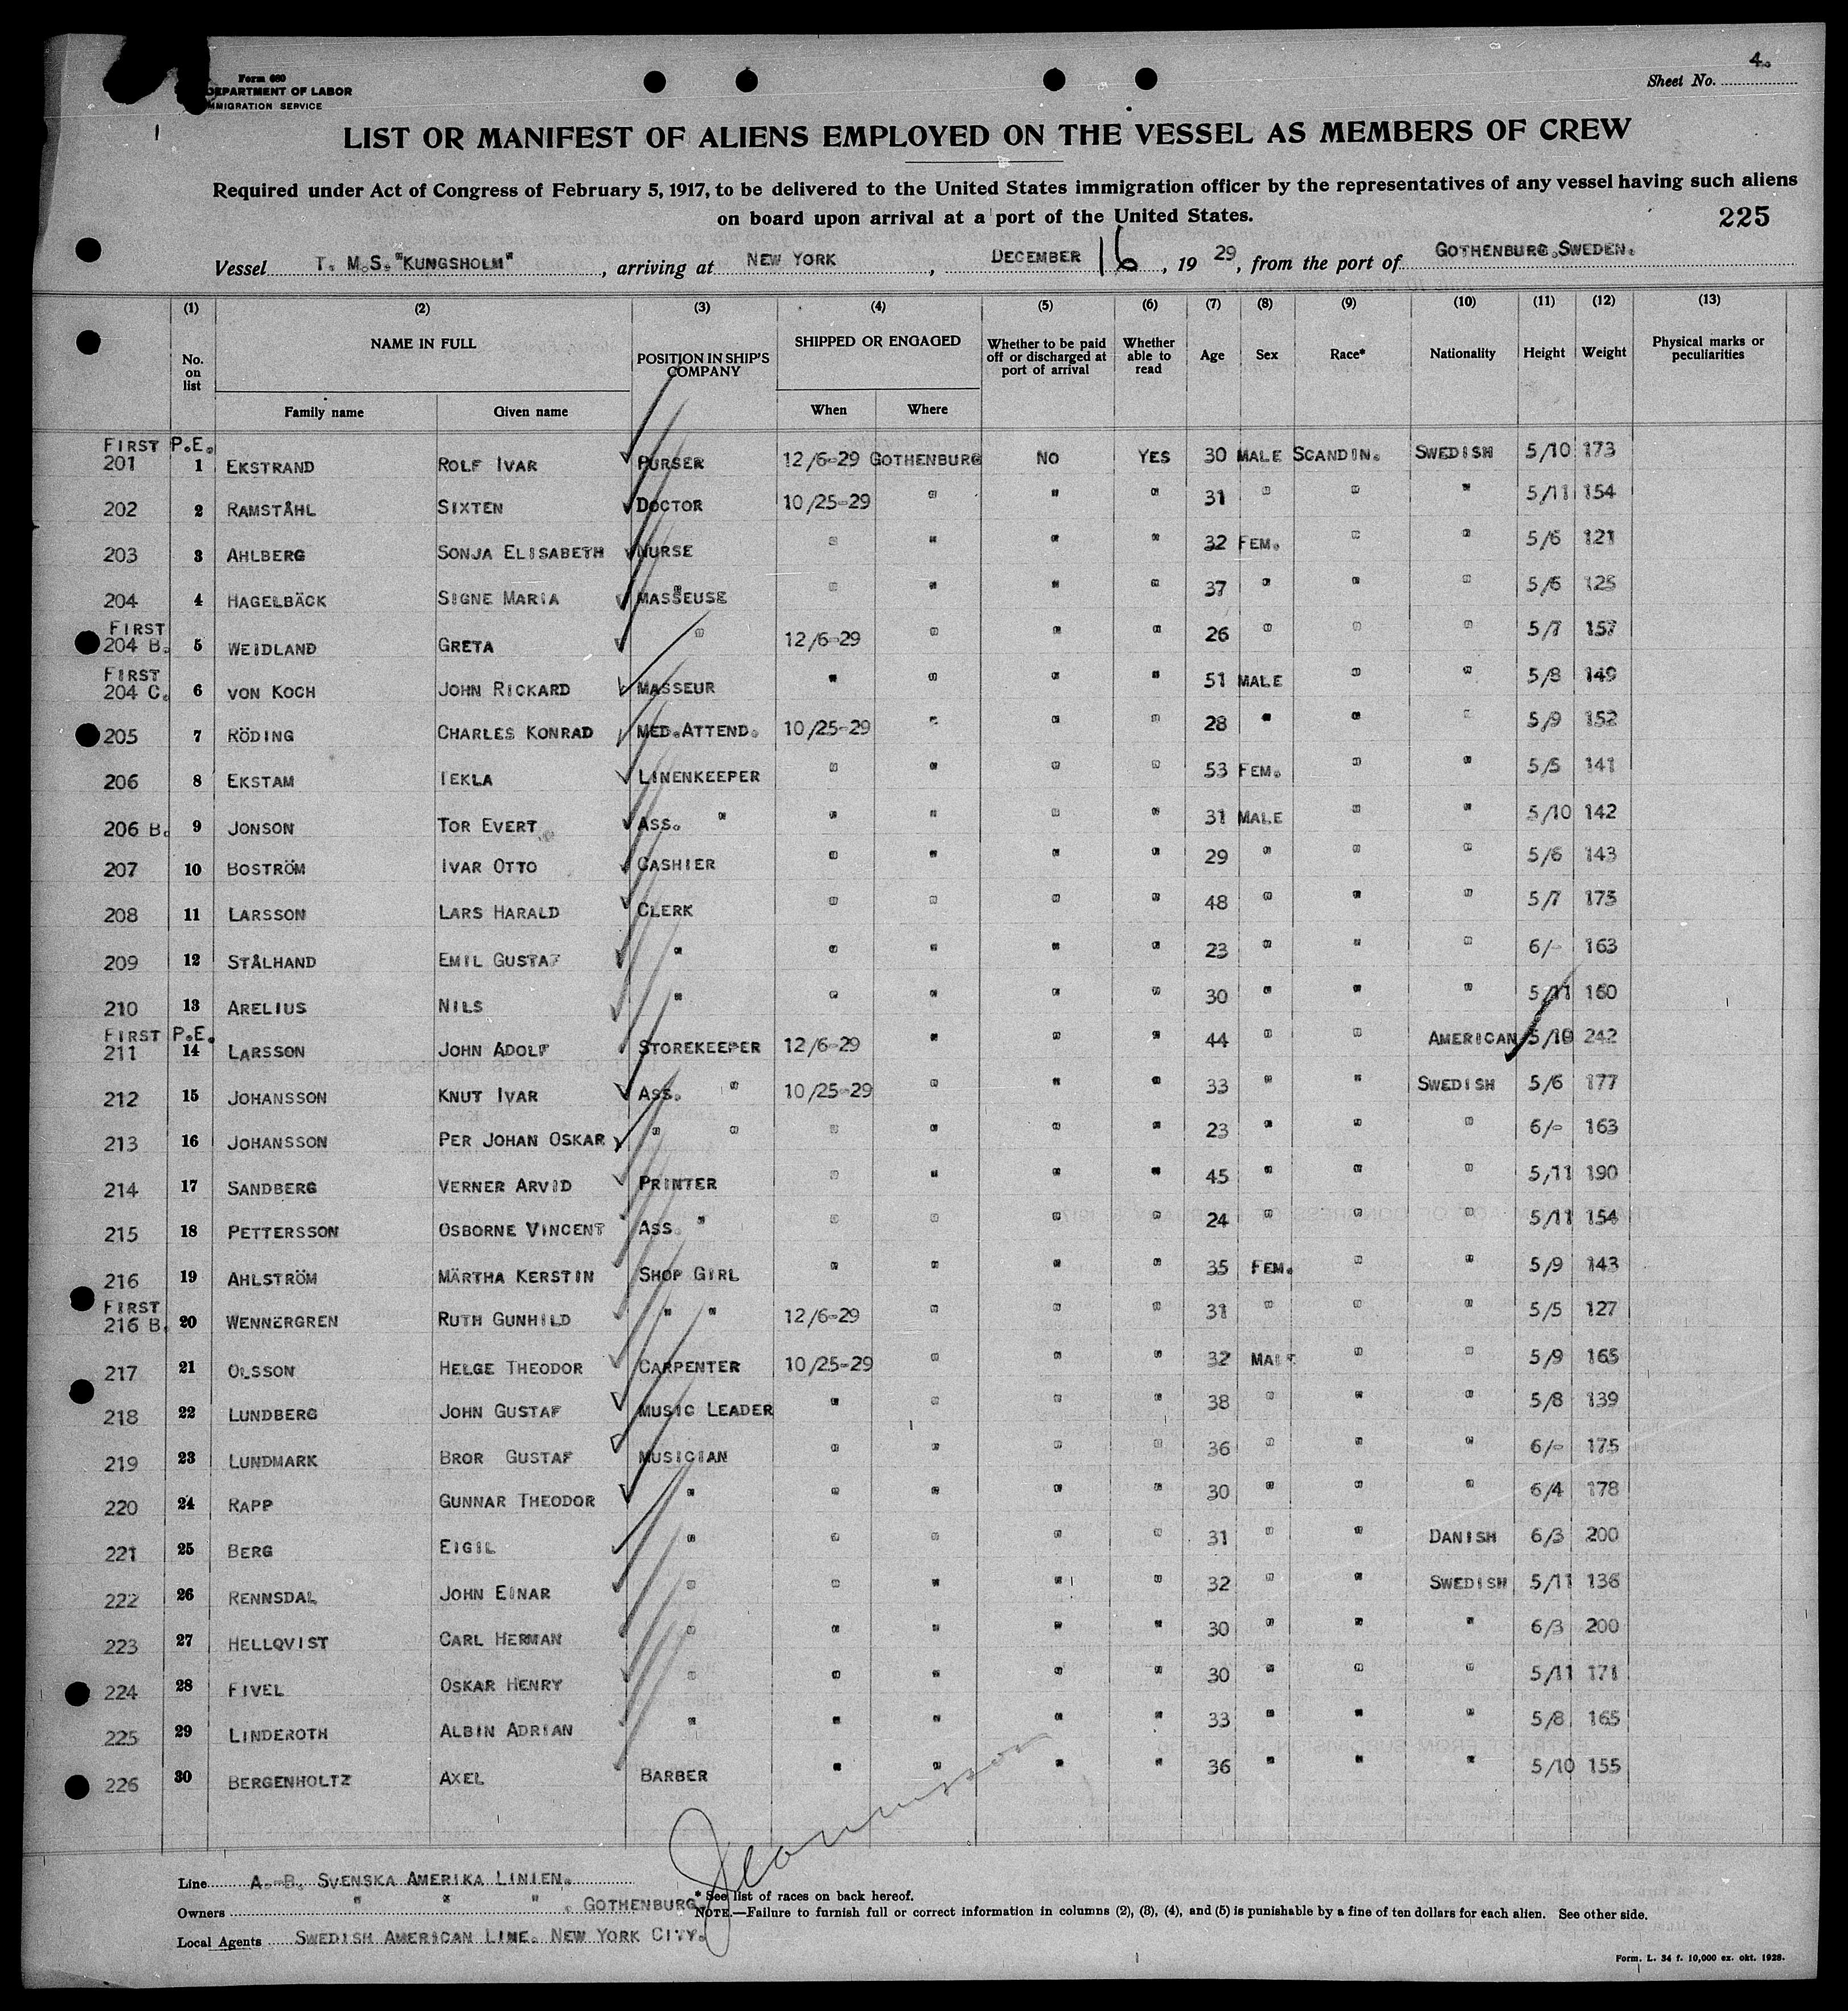 Form 680
DEPARTMENT OF LABOR
IMMIGRATION SERVICE
Sheet No. 4.
LIST OR MANIFEST OF ALIENS EMPLOYED ON THE VESSEL AS MEMBERS OF CREW
Required under Act of Congress of February 5, 1917, to be delivered to the United States immigration officer by the representatives of any vessel having such aliens
on board upon arrival at a port of the United States.
225
Vessel T. M.S. "KUNGSHOLM", arriving at NEW YORK, DECEMBER 16, 19 29, from the port of GOTHENBURG, SWEDEN.
(1) (2) (3) (4) (5) (6) (7) (8) (9) (10) (11) (12) (13)
No. on list NAME IN FULL POSITION IN SHIP'S COMPANY SHIPPED OR ENGAGED Whether to be paid off or discharged at port of arrival Whether able to read Age Sex Race* Nationality Height Weight Physical marks or peculiarities
Family name Given name When Where
FIRST P.E.
201 1 EKSTRAND ROLF IVAR PURSER 12/6-29 GOTHENBURG NO YES 30 MALE SCANDIN. SWEDISH 5/10 173
202 2 RAMSTÅHL SIXTEN DOCTOR 10/25-29 " " " 31 " " " 5/11 154
203 3 AHLBERG SONJA ELISABETH NURSE " " " " 32 FEM. " " 5/6 121
204 4 HAGELBÄCK SIGNE MARIA MASSEUSE " " " " 37 " " " 5/6 125
FIRST
204 B. 5 WEIDLAND GRETA " 12/6-29 " " " 26 " " " 5/7 157
FIRST
204 C. 6 VON KOCH JOHN RICKARD MASSEUR " " " " 51 MALE " " 5/8 149
205 7 RÖDING CHARLES KONRAD MED.ATTEND. 10/25-29 " " " 28 " " " 5/9 152
206 8 EKSTAM TEKLA LINENKEEPER " " " " 53 FEM. " " 5/5 141
206 B. 9 JONSON TOR EVERT ASS. " " " " " 31 MALE " " 5/10 142
207 10 BOSTRÖM IVAR OTTO CASHIER " " " " 29 " " " 5/6 143
208 11 LARSSON LARS HARALD CLERK " " " " 48 " " " 5/7 175
209 12 STÅLHAND EMIL GUSTAF " " " " " 23 " " " 6/- 163
210 13 ARELIUS NILS " " " " " 30 " " " 5/11 160
FIRST P.E.
211 14 LARSSON JOHN ADOLF STOREKEEPER 12/6-29 " " " 44 " " AMERICAN 5/10 242
212 15 JOHANSSON KNUT IVAR ASS. " 10/25-29 " " " 33 " " SWEDISH 5/6 177
213 16 JOHANSSON PER JOHAN OSKAR " " " " " " 23 " " " 6/- 163
214 17 SANDBERG VERNER ARVID PRINTER " " " " 45 " " " 5/11 190
215 18 PETTERSSON OSBORNE VINCENT ASS. " " " " " 24 " " " 5/11 154
216 19 AHLSTRÖM MÄRTHA KERSTIN SHOP GIRL " " " " 35 FEM. " " 5/9 143
FIRST
216 B. 20 WENNERGREN RUTH GUNHILD " " 12/6-29 " " " 31 " " " 5/5 127
217 21 OLSSON HELGE THEODOR CARPENTER 10/25-29 " " " 32 MALE " " 5/9 165
218 22 LUNDBERG JOHN GUSTAF MUSIC LEADER " " " " 38 " " " 5/8 139
219 23 LUNDMARK BROR GUSTAF MUSICIAN " " " " 36 " " " 6/- 175
220 24 RAPP GUNNAR THEODOR " " " " " 30 " " " 6/4 178
221 25 BERG EIGIL " " " " " 31 " " DANISH 6/3 200
222 26 RENNSDAL JOHN EINAR " " " " " 32 " " SWEDISH 5/11 136
223 27 HELLQVIST CARL HERMAN " " " " " 30 " " " 6/3 200
224 28 FIVEL OSKAR HENRY " " " " " 30 " " " 5/11 171
225 29 LINDEROTH ALBIN ADRIAN " " " " " 33 " " " 5/8 165
226 30 BERGENHOLTZ AXEL BARBER " " " " 36 " " " 5/10 155
Line A.-B. SVENSKA AMERIKA LINIEN.
Owners " " " , GOTHENBURG.
Local Agents SWEDISH AMERICAN LINE. NEW YORK CITY.
* See list of races on back hereof.
NOTE.—Failure to furnish full or correct information in columns (2), (3), (4), and (5) is punishable by a fine of ten dollars for each alien. See other side.
Form. L. 34 f. 10,000 ex. okt. 1928.